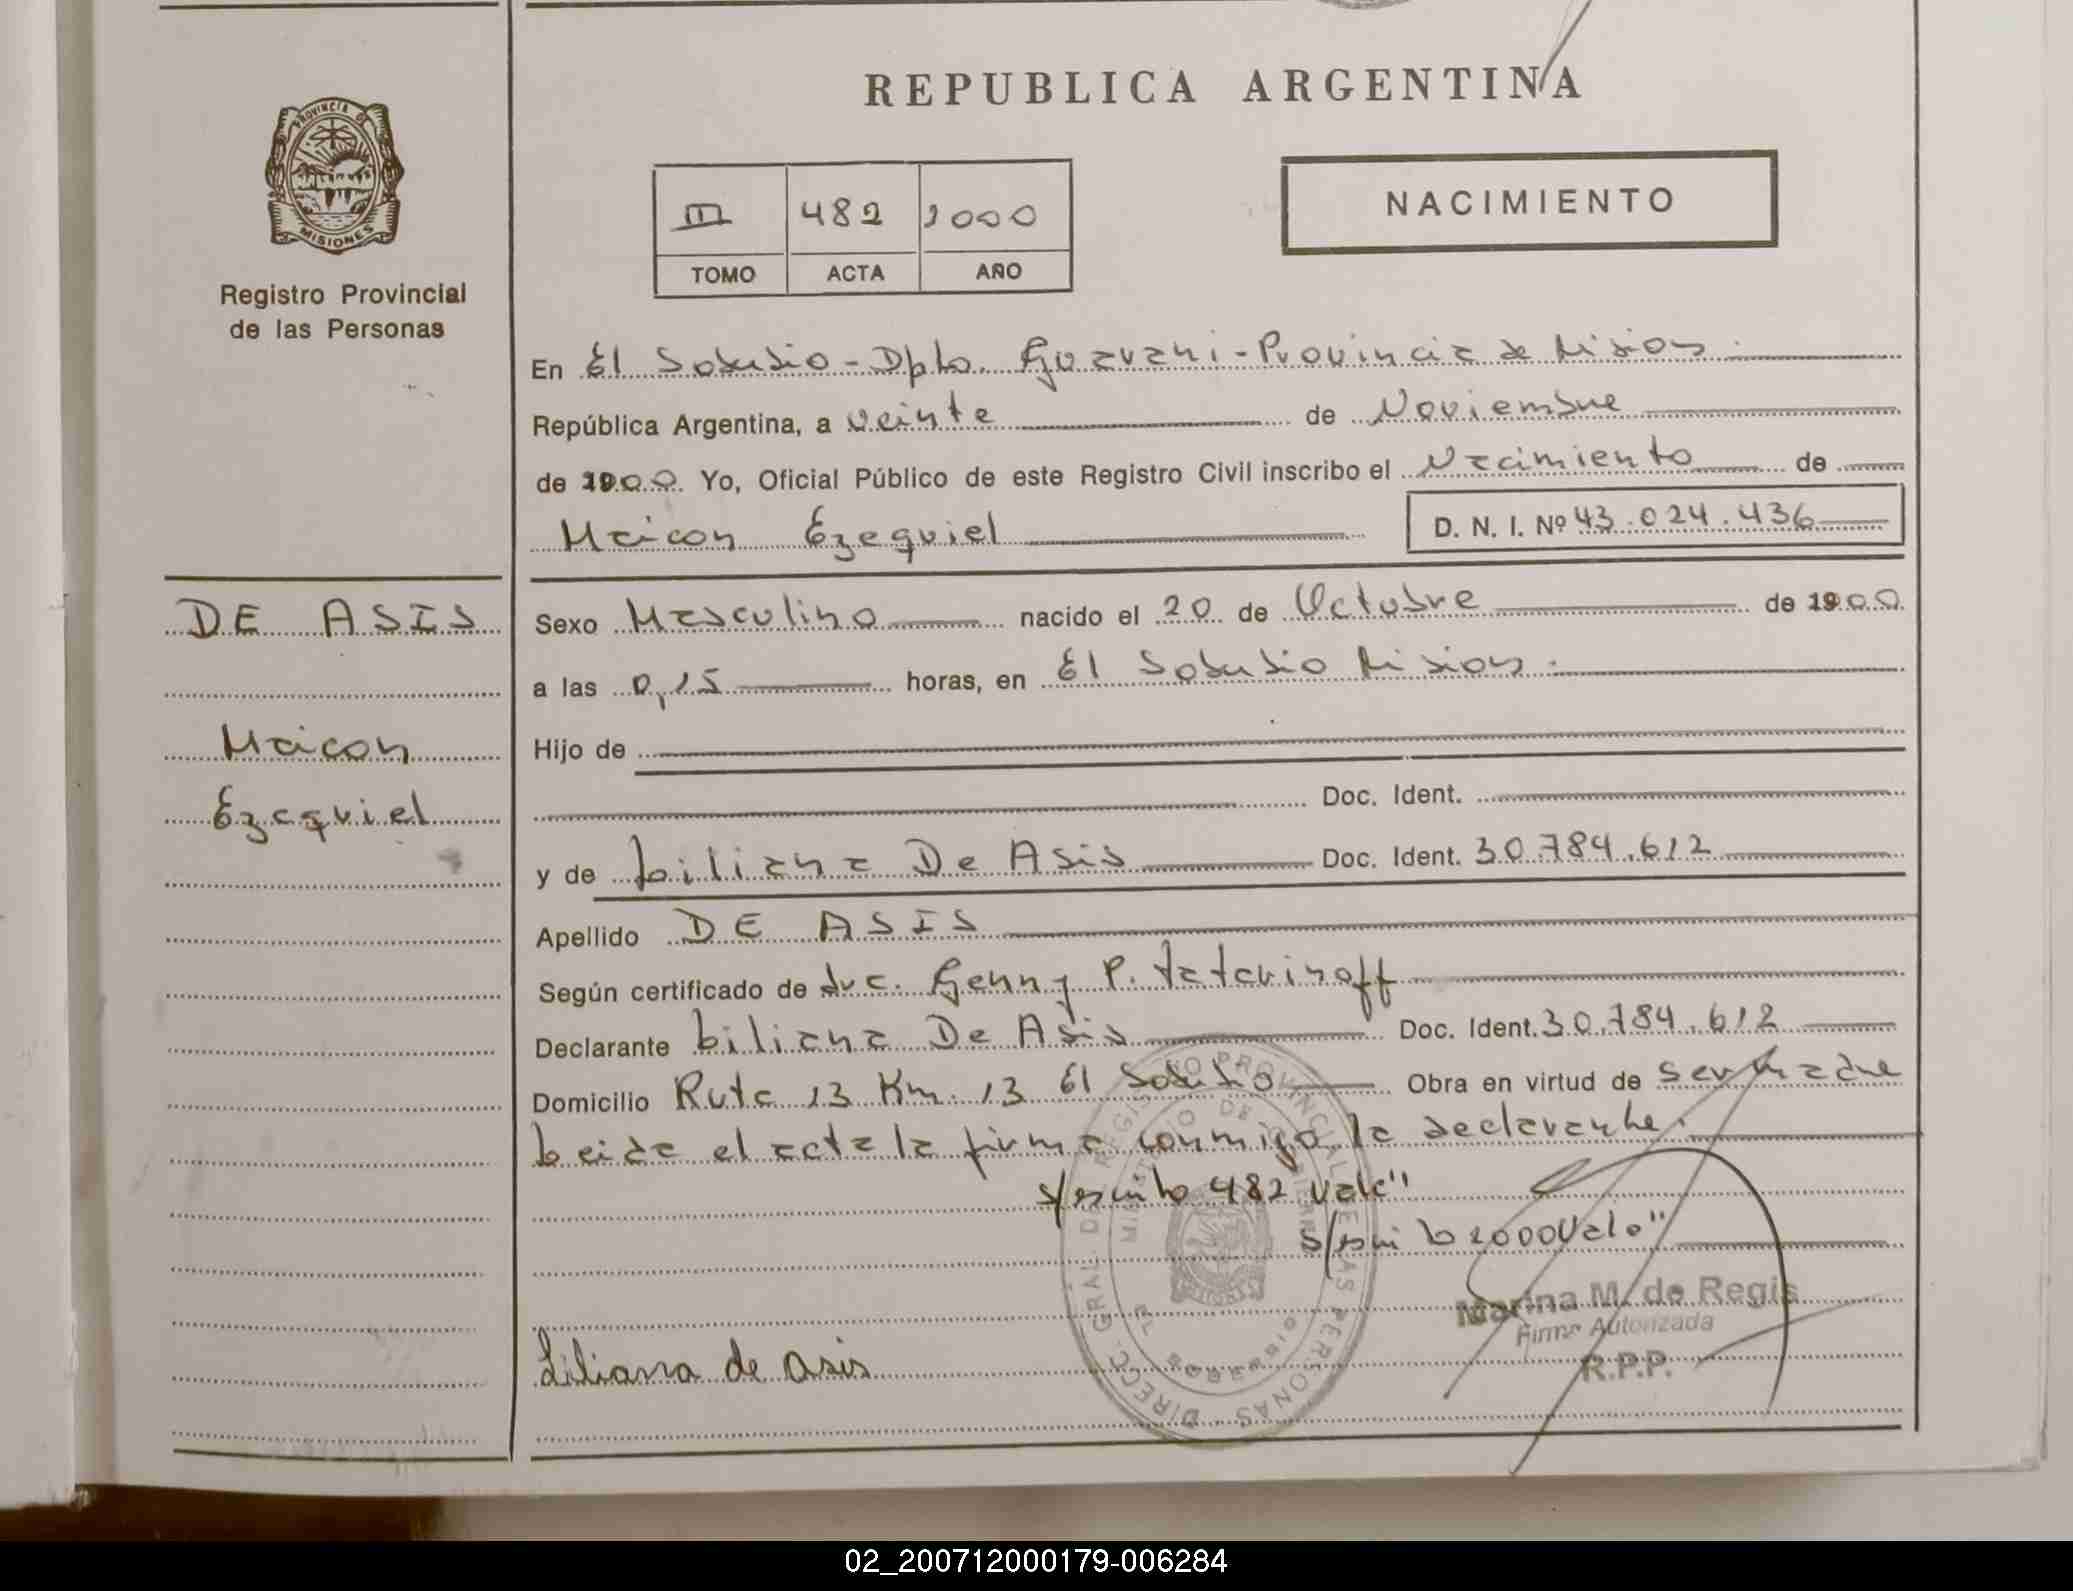 REPUBLICA ARGENTINA
PROVINCIA DE
MISIONES
Registro Provincial
de las Personas
III 482 2000
TOMO ACTA AÑO
NACIMIENTO
En El Soberbio - Dpto. Guarani - Provincia de Misiones
República Argentina, a veinte de Noviembre
de 2000. Yo, Oficial Público de este Registro Civil inscribo el Nacimiento de
Maicon Ezequiel D. N. I. Nº 43.024.436
DE ASIS
Maicon
Ezequiel
Sexo Masculino nacido el 20 de Octubre de 2000
a las 0,15 horas, en El Soberbio Misiones
Hijo de
Doc. Ident.
y de Liliana De Asis Doc. Ident. 30.784.612
Apellido DE ASIS
Según certificado de Genny P.
Declarante Liliana De Asis Doc. Ident. 30.784.612
Domicilio Ruta 13 Km. 13 El Soberbio Obra en virtud de ser madre
Leida el acta la firma conmigo la declarante.
s/escrito 482 Vale"
s/escrito 2000 Vale"
Marina M. de Regis
Firma Autorizada
R.P.P.
Liliana de asis
DIRECC. GRAL. DEL REGISTRO PROVINCIAL DE LAS PERSONAS
MINISTERIO DE GOBIERNO
EL SOBERBIO
02_200712000179-006284